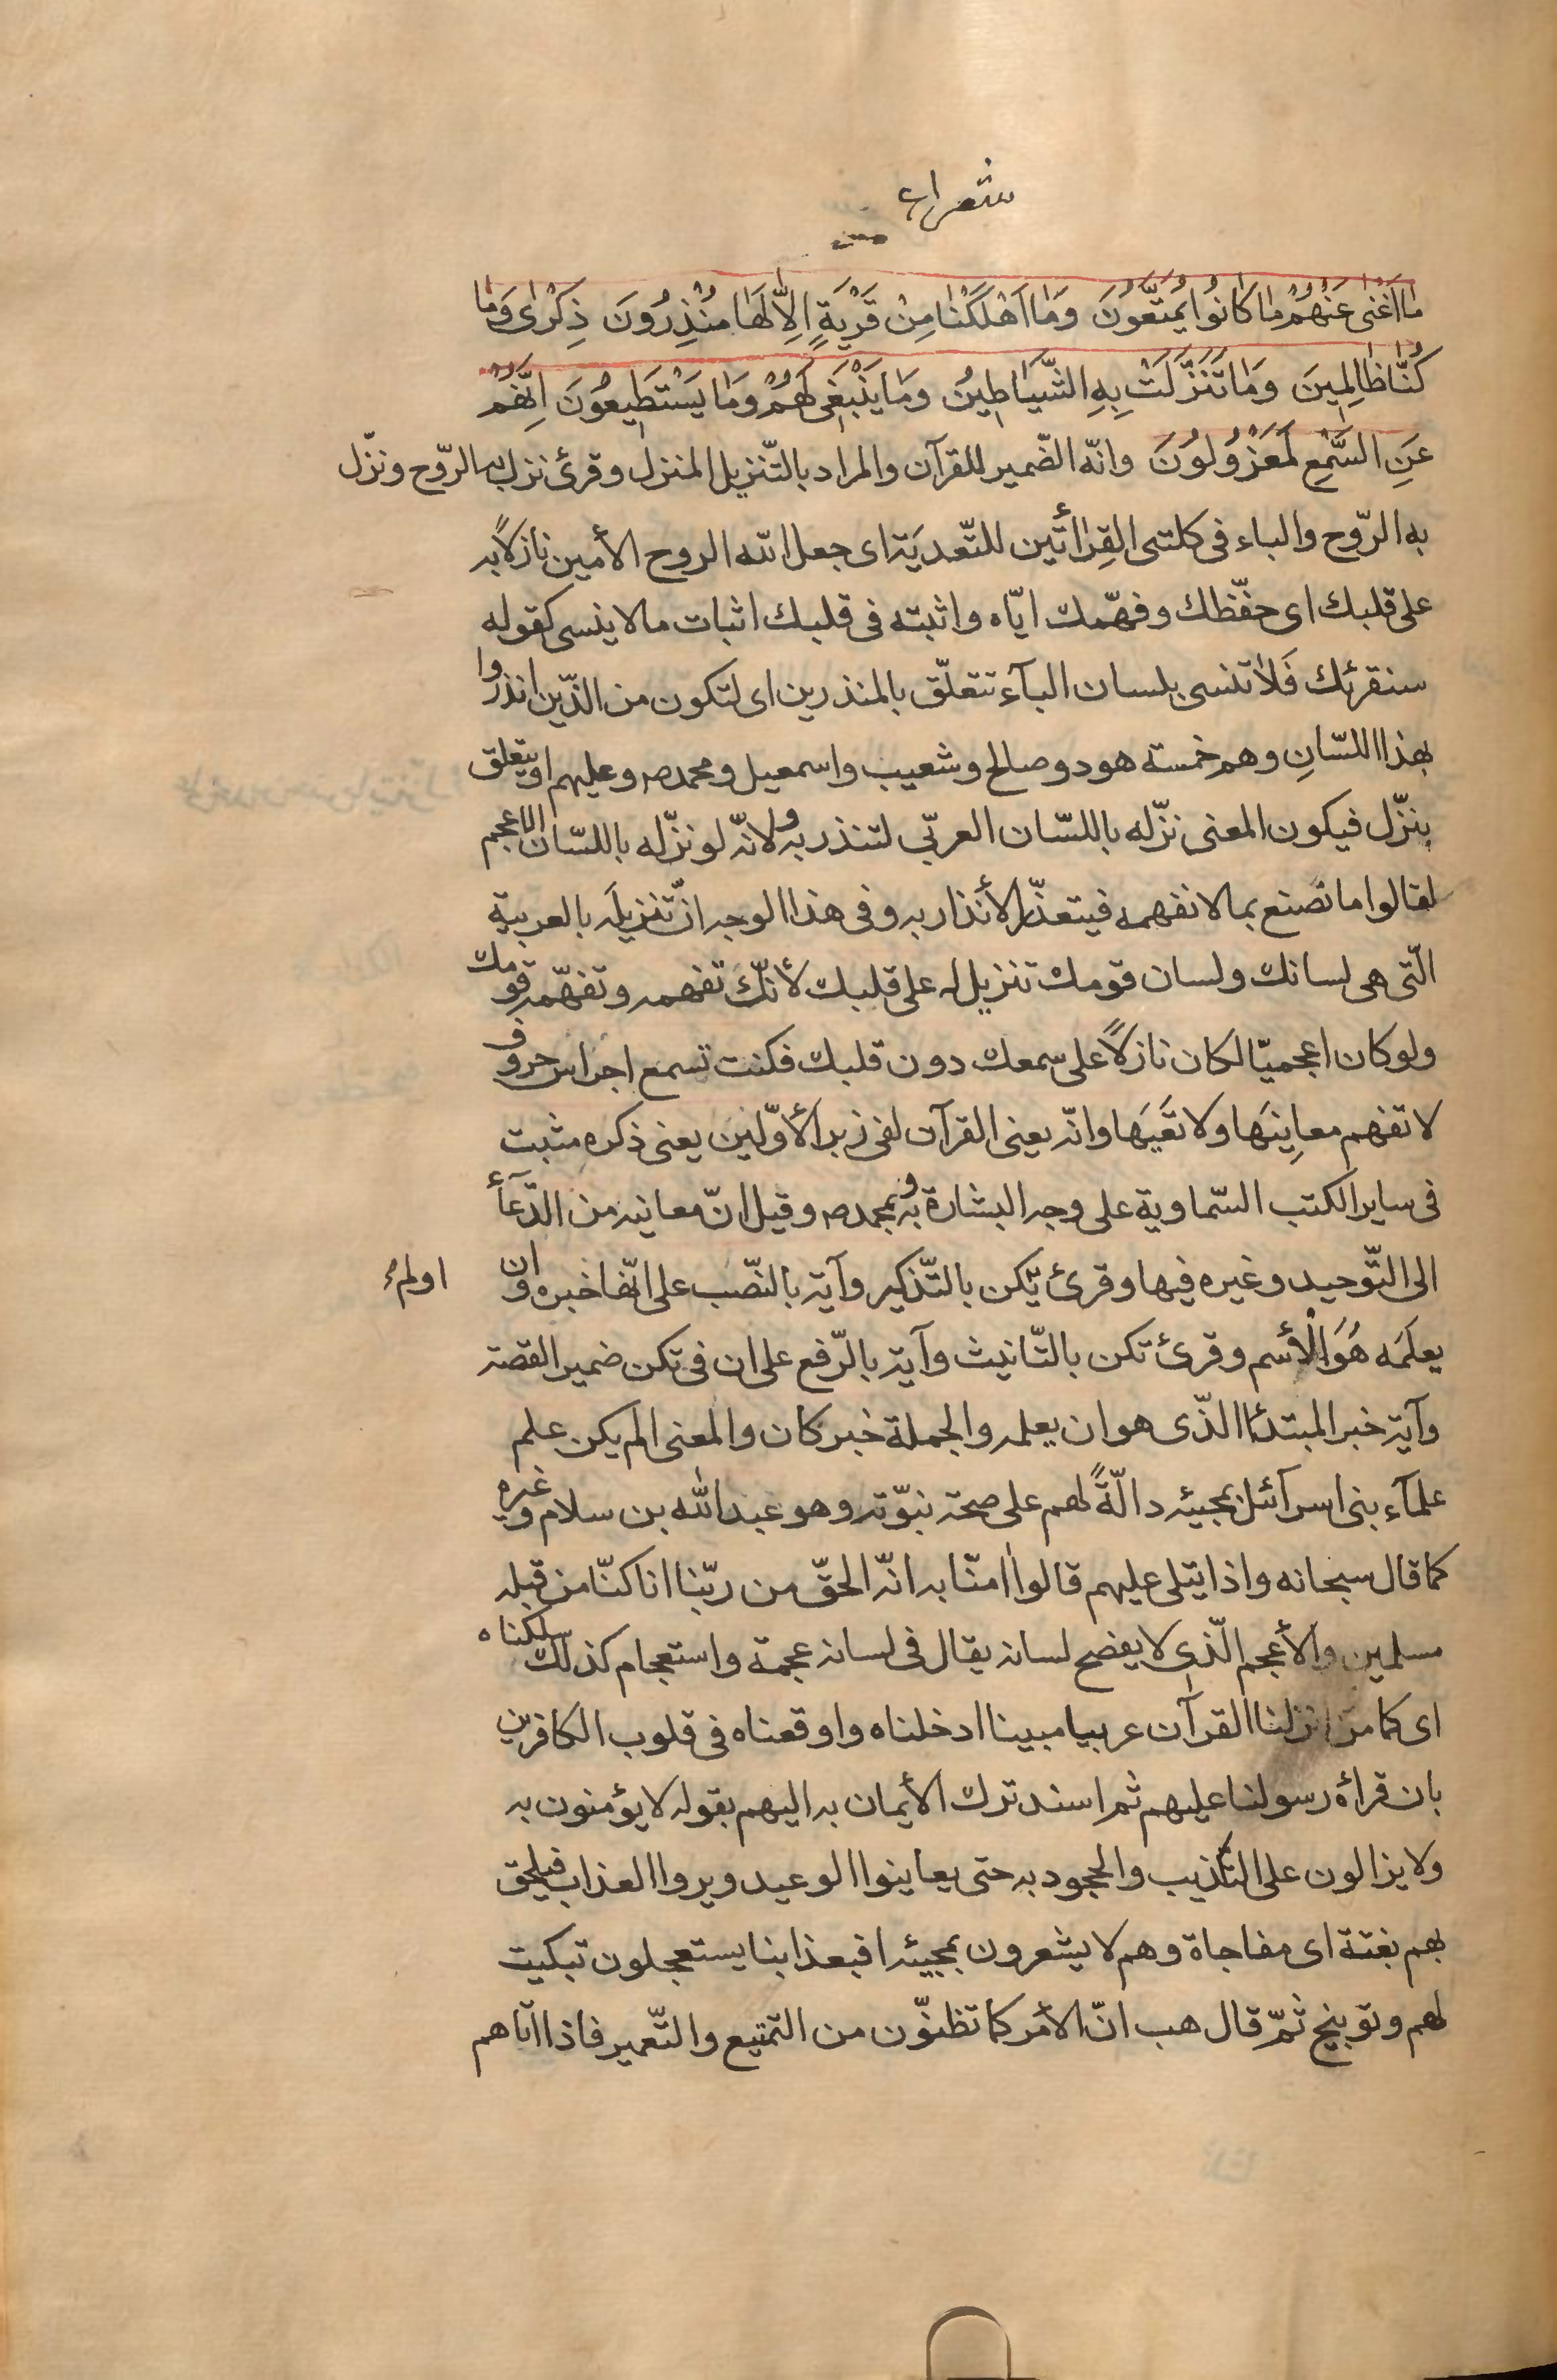 شعراء
مٰا اَغْنىٰ عَنْهُمْ مٰا كٰانُوا يُمَتَّعُونَ وَمٰا اَهْلَكْنٰا مِنْ قَرْيَةٍ اِلاّٰ لَهٰا مُنْذِرُونَ ذِكْرٰى وَمٰا
كُنّٰا ظٰالِمِينَ وَمٰا تَنَزَّلَتْ بِهِ الشَّيٰاطِينُ وَمٰا يَنْبَغِى لَهُمْ وَمٰا يَسْتَطِيعُونَ اِنَّهُمْ
عَنِ السَّمْعِ لَمَعْزُولُونَ وانّه الضّمير للقرآن والمراد بالتّنزيل المنزل وقرئ نزل به الرّوح ونزّل
به الرّوح والباء فى كلتى القِرٰائتَين للتّعديَة اى جعل اللّه الروح الأمين نازلاً به
على قلبك اى حفّظك وفهّمك ايّاه واثبته فى قلبك اثبات ما لا ينسى كقوله
سنقرئك فَلاٰ تنسى بلسان البآء تتعلّق بالمنذرين اى لتكون من الذّين انذروا
بهذا اللسّانِ وهم خمسة هود وصالح وشعيب واسمعيل ومحمد ص وعليهم او يتعلق
بنزّل فيكون المعنى نزّله باللسّان العربّى لتنذر به ولانّه لو نزّله باللسّان الاعجم
لقالوا ما نصنع بما لا نفهمه فيتعذّر الأنذار به وفى هذا الوجه انّ تنزيلَه بالعربية
الّتى هى لسانك ولسان قومك تنزيل له على قلبك لأنّكَ تفهمه وتفهّمه قومك
ولو كان اعجميّا لكان نازلاً على سمعك دون قلبك فكنت تسمع اجراس حروف
لا تفهم معانِيَها ولا تَعيَها وانّه يعنى القرآن لفى زبر الأوّلين يعنى ذكره مثبت
فى ساير الكتب السّماوية على وجه البشارة به وبمحمد ص وقيل انّ معانيه من الدّعآء
الى التّوحيد وغيره فيها وقرئ يّكن بالتّذكير وآية بالنّصب على انّها خبره وان
اولم
يعلَمَه هُوَ الْأسم وقرئ تكن بالتّانيث وآية بالرّفع على ان فى تكن ضمير القصة
وآية خبر المبتدئا الذّى هو ان يعلمه والجملة خبر كان والمعنى الم يكن علم
علمآء بنى اسرآئل بمجيئه دالّةً لهم على صحة نبّوته وهو عبد اللّه بن سلام وغيره
كما قال سبحانه واذا يتلى عليهم قالوا امنّا به انّه الحقّ من ربّنا انا كنّا من قبله
مسلمين والأعجم الّذى لا يفصح لسانه يقال فى لسانه عجمة واستعجام كذلك سلكناه
اى كما انزلنا القرآن عربيا مبينا ادخلناه واوقعناه فى قلوب الكافرين
بان قرأه رسولنا عليهم ثم اسند ترك الأيمان به اليهم بقوله لا يؤمنون به
ولا يزالون على التكّذيب والجحود به حتى يعاينوا الوعيد ويروا العذاب فيلحق
بهم بغتة اى مفاجاة وهم لا يشعرون بمجيئه افبعذابنا يستعجلون تبكيت
لهم وتوبيخ ثمّ قال هب انّ الأمر كما تظنّون من التمّتيع والتّعمير فاذا اتاهم